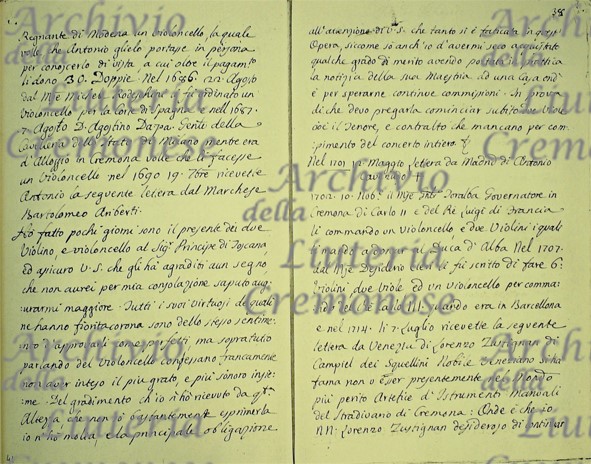 Regnante di Modena un violoncello, la quale
volle che Antonio glielo portasse in persona
per conoscerlo di vista, a cui oltre il pagamto
li donò 30. Doppie. Nel 1686. 22. Agosto
dal Mse Michele Rodeschini li fu ordinato un
Violoncello per la Corte di Spagna. E nel 1687.
7. Agosto D. Agostino Daria. Genle della
Cavalleria dello Stato di Milano mentre era
d'alloggio in Cremona volle che li facesse
un Violoncello nel 1690 19. 7bre ricevette
Antonio la seguente lettera dal Marchese
Bartolomeo Ariberti.
Ho fatto pochi giorni sono il presente dei due
Violini, e violoncello al Sigr Principe di Toscana,
ed assicuro V.S. che gli ha agraditi a un segno,
che non aurei per mia consolazione saputo augu
rarmi maggiore. Tutti i suoi virtuosi de quali
ne hanno fiorita corona sono dello stesso sentime
nto d'approvarli come perfetti, ma sopratutto
parlando del violoncello confessano francamente
non aver inteso il più grato, e più sonoro insie
me. Del gradimento ch'io n'hò ricevuto da qsta
Altezza che non so bastantemente esprimerla
io n'hò molta, e la principale obligazione
38
all'attenzione di V.S. che tanto si è faticata in qsta
Opera, siccome sò anch'io d'avermi seco acquistato
qualche grado di merito avendo portata
la notizia della sua Maestria ad una Casa onde
è per sperarne continue commissioni. In prova
di che devo pregarla cominciar subito due Viole
cioè il Tenore, e contralto che mancano per com
pimento del concerto intiero.
Nel 1701 12 Maggio lettera da Madrid di Antonio
1702. 10. Nobe. il Mse Toralba Governatore in
Cremona di Carlo II e del Rè Luigi di Francia
li commandò un violoncello, e due Violini i quali
li mandò a donar al Duca d'Alba. Nel 1707.
dal Mse Desiderio Cleri li fù scritto di fare 6.
Violini, due Viole ed un violoncello per comma
ndo del Rè Carlo III. quando era in Barcellona
e nel 1714. li 7. luglio ricevette la seguente
lettera da Venezia di Lorenzo Zustignan di
Campiel dei Squellini Nobile Veneziano si ha
fama non v'esser presentemente nel Mondo
più perito Artefice d'Istrumenti Manuali
del Stradivario di Cremona: Onde è che io
NN. Lorenzo Zustignan desideroso di
Archivio
della
Liuteria
Cremonese